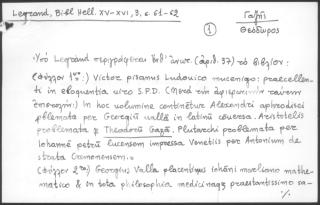 Legrand, Bibl Hell. XV-XVI, 3, σ. 61-62
Γαζῆς
Θεόδωρος
1
Ὑπό Legrand περιγράφεται ὑπ' ἀριθ. 57) τό βιβλίον:
(φύλλον 1ον:) Victor pisanus Ludovico mucenigo: praecellen-
ti in eloquentia uiro S.P.D. (Μετά τήν ἀφιερωτικήν ταύτην
ἐπιστολήν:) In hoc uolumine continẽtur Alexandri aphrodisei
pblemata per Georgiũ uallã in latinũ conuersa. Aristotelis
problemata per Theodorũ Gazã. Plutarchi problemata per
Iohannẽ petrũ lucensem impressa Venetiis per Antonium de
strata Cremonensem.
(φύλλον 2ον) Georgius Valla placentinus iohãni marliano mathe-
matico & in tota philosophia medicinaqz praestantissimo sa-
%